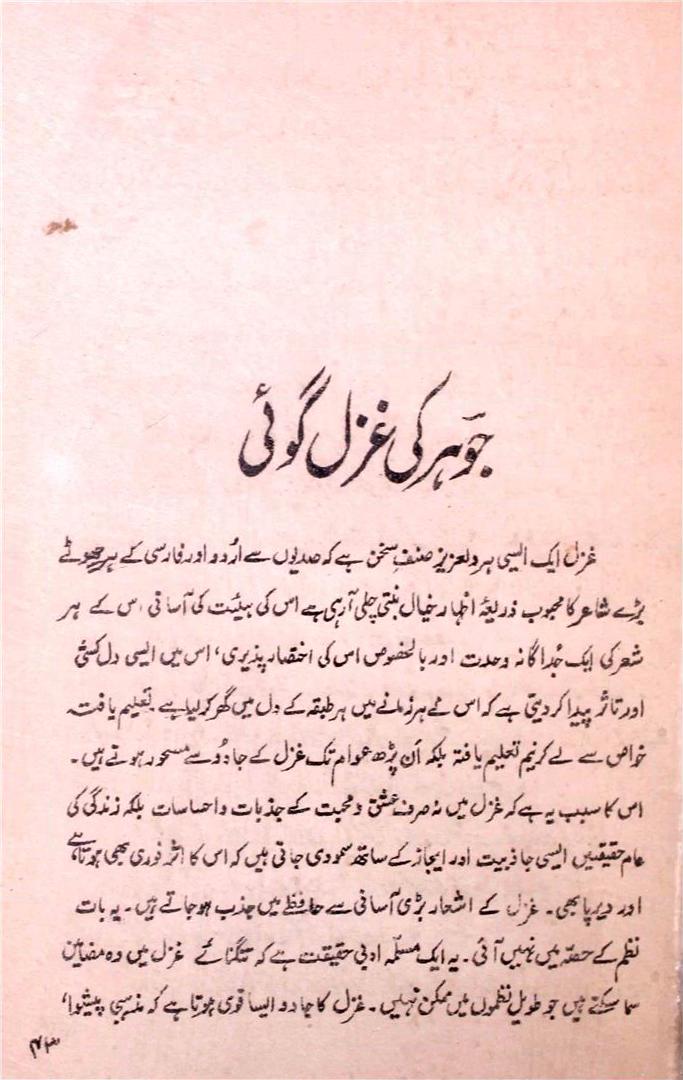 جوہر کی غزل گوئی
غزل ایک ایسی ہر دلعزیز صنفِ سخن ہے کہ صدیوں سے اُردو اور فارسی کے ہر چھوٹے
بڑے شاعر کا محبوب ذریعۂ اظہار خیال بنتی چلی آرہی ہے اس کی ہیئت کی آسانی اس کے ہر
شعر کی ایک جُداگانہ وحدت اور بالخصوص اس کی اختصار پذیری، اس میں ایسی دل کشی
اور تاثر پیدا کر دیتی ہے کہ اس نے ہر زمانے میں ہر طبقہ کے دل میں گھر کر لیا ہے۔ تعلیم یافتہ
خواص سے لے کر نیم تعلیم یافتہ بلکہ اَن پڑھ عوام تک غزل کے جادُو سے مسحور ہوتے ہیں۔
اس کا سبب یہ ہے کہ غزل میں نہ صرف عشق و محبت کے جذبات و احساسات بلکہ زندگی کی
عام حقیقتیں ایسی جاذبیت اور ایجاز کے ساتھ سمودی جاتی ہیں کہ اس کا اثر فوری بھی ہوتا ہے
اور دیرپا بھی۔ غزل کے اشعار بڑی آسانی سے حافظے میں جذب ہو جاتے ہیں۔ یہ بات
نظم کے حصّہ میں نہیں آئی۔ یہ ایک مسلّمہ ادبی حقیقت ہے کہ تنگنائے غزل میں وہ مضامین
سما سکتے ہیں جو طویل نظموں میں ممکن نہیں۔ غزل کا جادو ایسا قوی ہوتا ہے کہ مذہبی پیشوا،